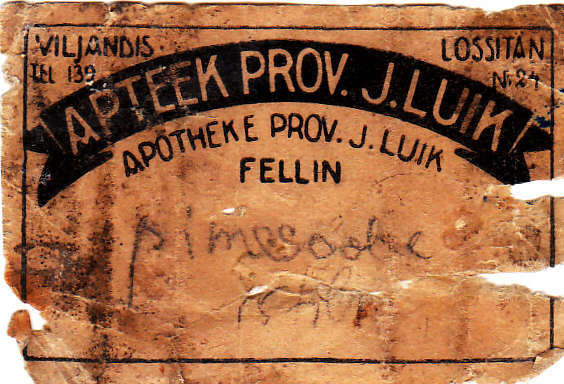 VILJANDIS.
LOSSITÄN
TEL 139
Nr. 24
APTEEK PROV. J. LUIK
APOTHEKE PROV. J. LUIK
FELLIN